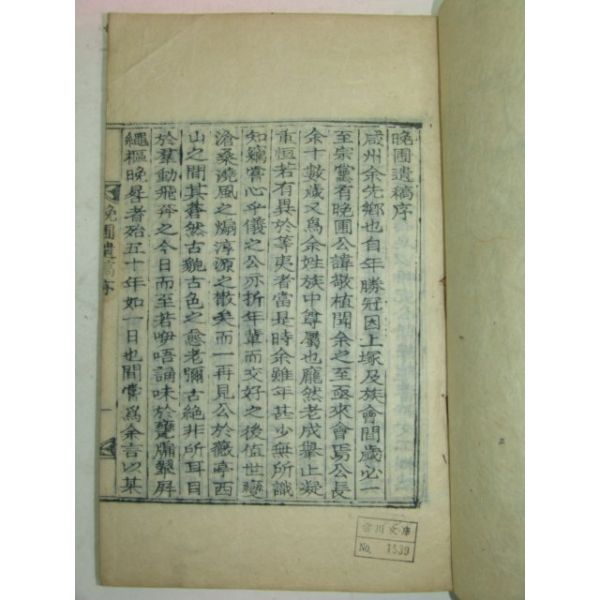 晩圃遺稿序
咸州余先鄕也自年勝冠因上塚及族會間歲必一
至宗黨有晩圃公諱敬植聞余之至亟來會焉公長
余十數歲又爲余姓族中尊屬也龐然老成擧止凝
重恒若有異於等夷者當是時余雖年甚少無所識
知竊嘗心乎儀之公亦折年輩而交好之後値世變
滄桑澆風之煽淳源之散矣而一再見公於 亭西
山之間其蒼然古貌古色之愈老彌古絶非所耳目
於羣動飛奔之今日而至若咿唔誦味於甕牖 屛
繩樞晩暑者殆五十年如一日也間嘗爲余言以某
晩圃遺稿序
一
No. 1539